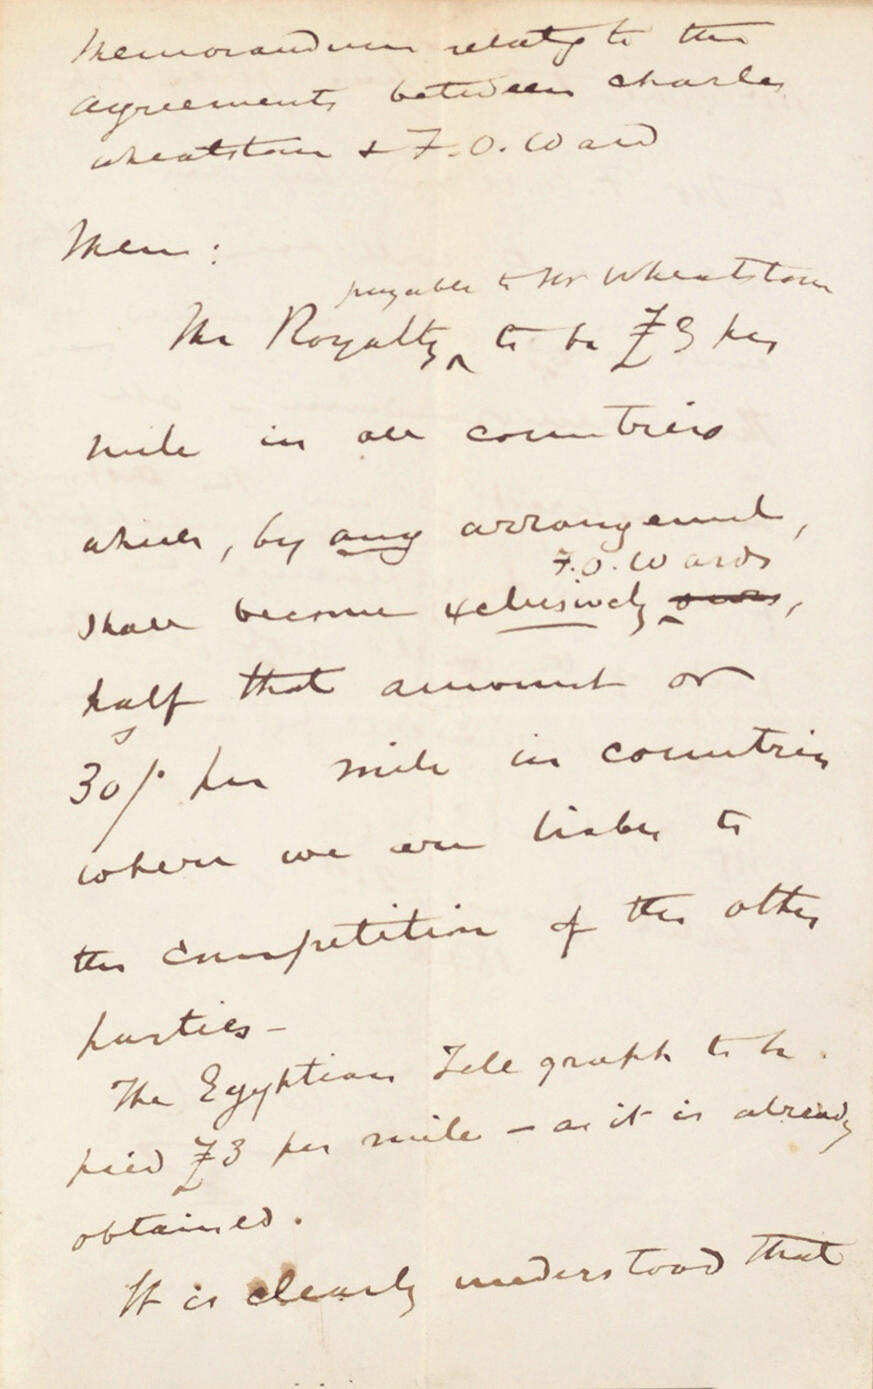 Memorandum relatg to the
agreements between Charles
Wheatstone & F. O. Ward
Mem :
payable to Mr Wheatstone
The Royalty ^ to be £3 per
mile in all countries
which, by any arrangement,
F.O. Wards
shall become exclusively ^ ours,
half that amount or
30/s per mile in countries
where we are liable to
the competition of the other
parties -
The Egyptian Telegraph to be
paid £3 per mile - as it is already
obtained.
It is clearly understood that